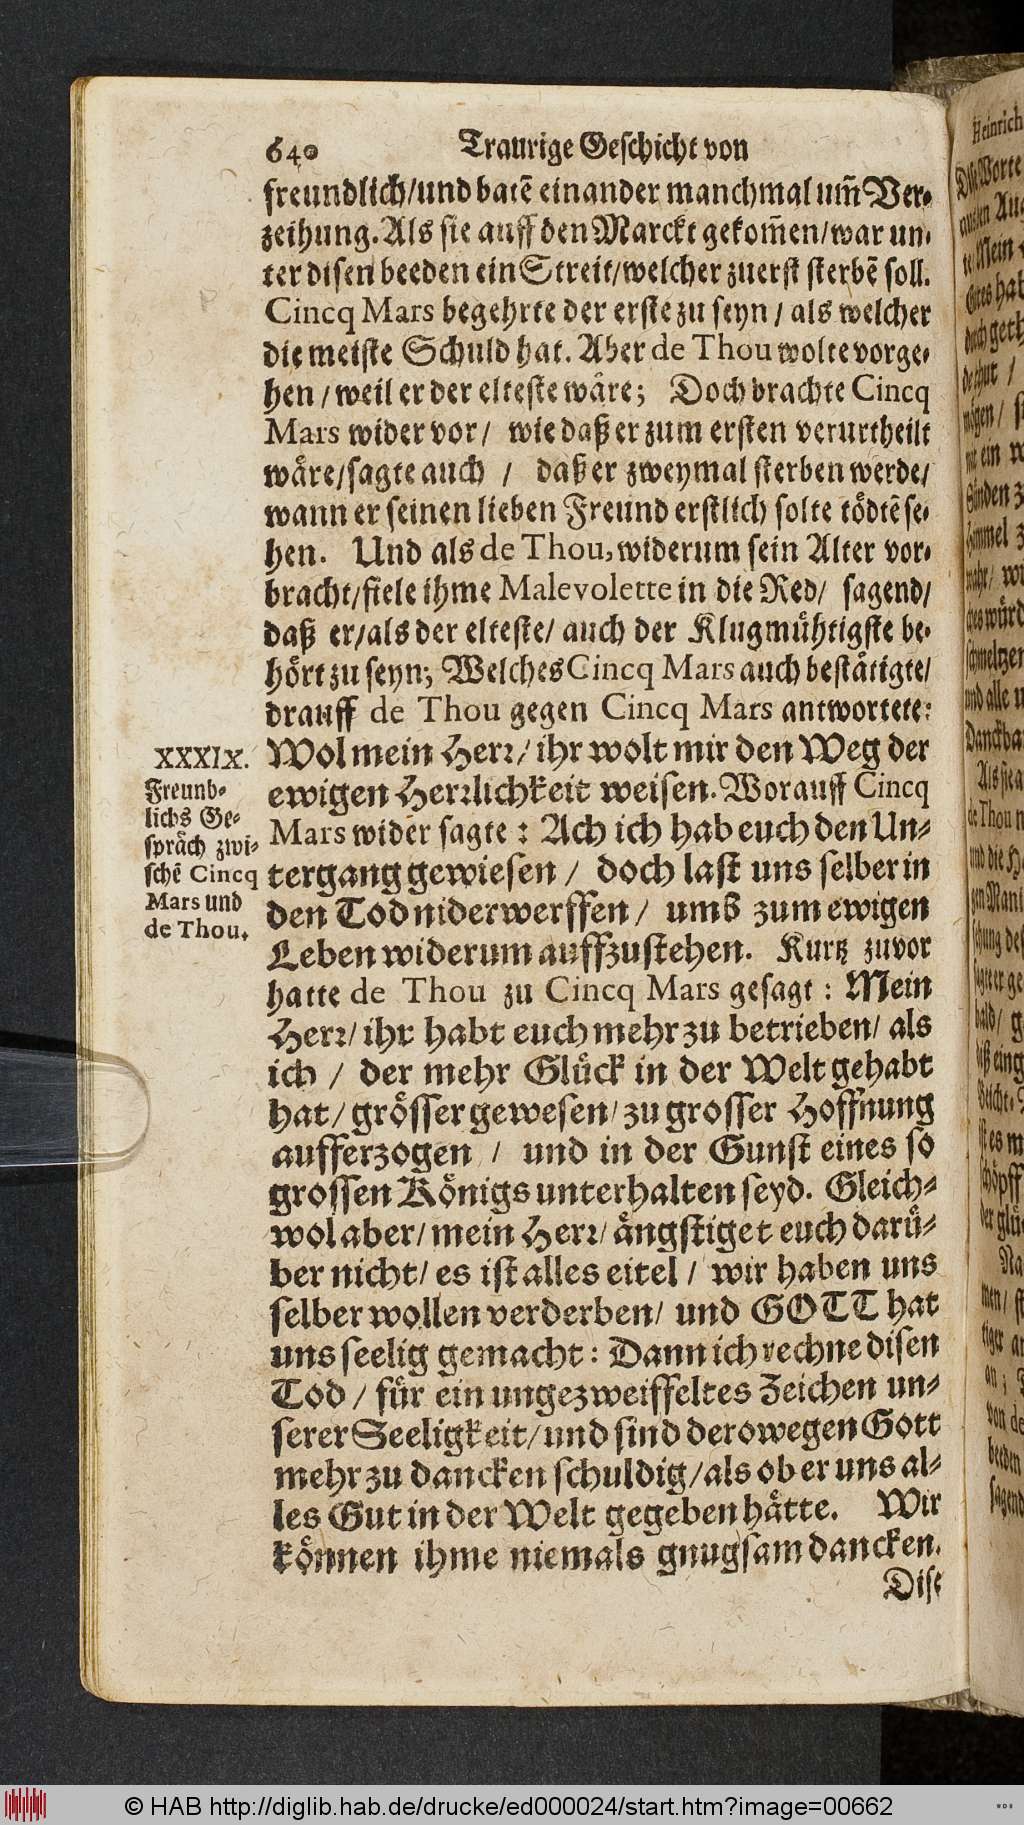 640 Traurige Geschicht von
freundlich/und batē einander manchmal um̃ Ver-
zeihung. Als sie auff den Marckt gekom̃en/war un-
ter disen beeden ein Streit/welcher zuerst sterbē soll.
Cincq Mars begehrte der erste zu seyn / als welcher
die meiste Schuld hat. Aber de Thou wolte vorge-
hen / weil er der elteste wåre; Doch brachte Cincq
Mars wider vor / wie daß er zum ersten verurtheilt
wåre/sagte auch / daß er zweymal sterben werde/
wann er seinen lieben Freund erstlich solte tödtē se-
hen. Und als de Thou, widerum sein Alter vor-
bracht/fiele ihme Malevolette in die Red/ sagend/
daß er/als der elteste/ auch der Klugmühtigste be-
hört zu seyn; Welches Cincq Mars auch bestätigte/
drauff de Thou gegen Cincq Mars antwortete:
XXXIX.
Freund-
lichs Ge-
språch zwi-
schē Cincq
Mars und
de Thou.
Wol mein Herr/ ihr wolt mir den Weg der
ewigen Herrlichkeit weisen. Worauff Cincq
Mars wider sagte: Ach ich hab euch den Un-
tergang gewiesen / doch last uns selber in
den Tod niderwerffen / ums zum ewigen
Leben widerum auffzustehen. Kurtz zuvor
hatte de Thou zu Cincq Mars gesagt: Mein
Herr/ ihr habt euch mehr zu betrieben/ als
ich / der mehr Glück in der Welt gehabt
hat/ grösser gewesen/ zu grosser Hoffnung
aufferzogen / und in der Gunst eines so
grossen Königs unterhalten seyd. Gleich-
wol aber/ mein Herr/ ångstiget euch darü-
ber nicht/ es ist alles eitel / wir haben uns
selber wollen verderben/ und GOTT hat
uns seelig gemacht: Dann ich rechne disen
Tod / für ein ungezweiffeltes Zeichen un-
serer Seeligkeit/ und sind derowegen Gott
mehr zu dancken schuldig/als ob er uns al-
les Gut in der Welt gegeben håtte. Wir
können ihme niemals gnugsam dancken.
Dise
Heinrich
Worte
Mein
© HAB http://diglib.hab.de/drucke/ed000024/start.htm?image=00662